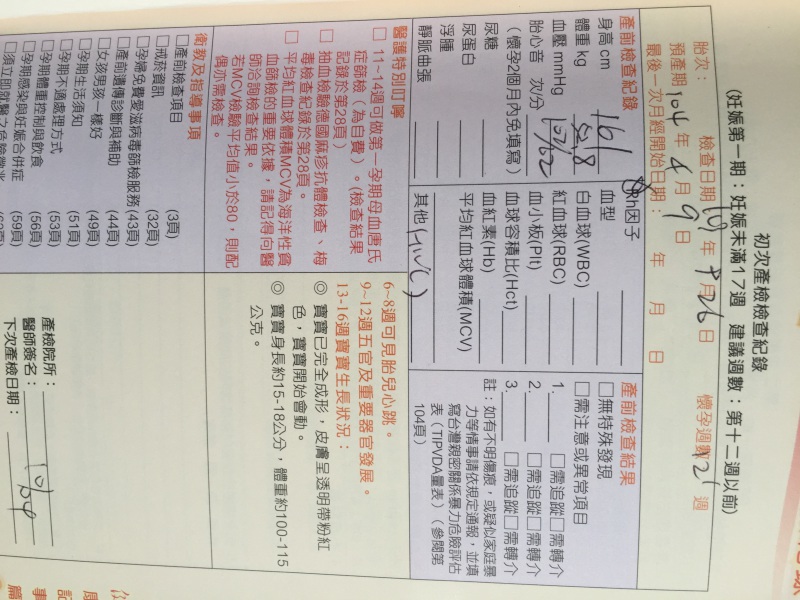 初次產檢檢查紀錄
(妊娠第一期：妊娠未滿17週 建議週數：第十二週以前)
胎次： 檢查日期 年 9月26日 懷孕週數12週
預產期104年4月9日
最後一次月經開始日期： 年 月 日
產前檢查紀錄
身高 cm 161
體重 kg
血壓 mmHg 107/62
胎心音 次/分
(懷孕2個月內免填寫)
尿糖
尿蛋白
浮腫
靜脈曲張
Rh因子
血型
白血球(WBC)
紅血球(RBC)
血小板(Plt)
血球容積比(Hct)
血紅素(Hb)
平均紅血球體積(MCV)
其他
產前檢查結果
□無特殊發現
□需注意或異常項目
1. □需追蹤□需轉介
2. □需追蹤□需轉介
3. □需追蹤□需轉介
註：如有不明傷痕，或疑似家庭暴
力等情事請依規定通報，並填
寫台灣親密關係暴力危險評估
表（TIPVDA量表）（參閱第
104頁）
醫護特別叮嚀
□ 11~14週可做第一孕期母血唐氏
症篩檢（為自費）。(檢查結果
記錄於第28頁)
□ 抽血檢驗德國麻疹抗體檢查、梅
毒檢查紀錄於第28頁。
□ 平均紅血球體積MCV為海洋性貧
血篩檢的重要依據，請記得向醫
師洽詢檢查結果。
若MCV檢驗平均值小於80，則配
偶亦需檢查。
6~8週可見胎兒心跳。
9~12週五官及重要器官發展。
13-16週寶寶生長狀況：
◎ 寶寶已完全成形，皮膚呈透明帶粉紅
色，寶寶開始會動。
◎ 寶寶身長約15-18公分，體重約100-115
公克。
衛教及指導事項
□產前檢查項目 (3頁)
□戒菸資訊 (32頁)
□孕婦免費愛滋病毒篩檢服務 (43頁)
□產前遺傳診斷與補助 (44頁)
□女孩男孩一樣好 (49頁)
□孕期生活須知 (51頁)
□孕期不適處理方式 (53頁)
□孕期體重控制與飲食 (56頁)
□孕期感染與妊娠合併症 (59頁)
□須立即就醫之危險徵兆
產檢院所：
醫師簽名：
下次產檢日期：